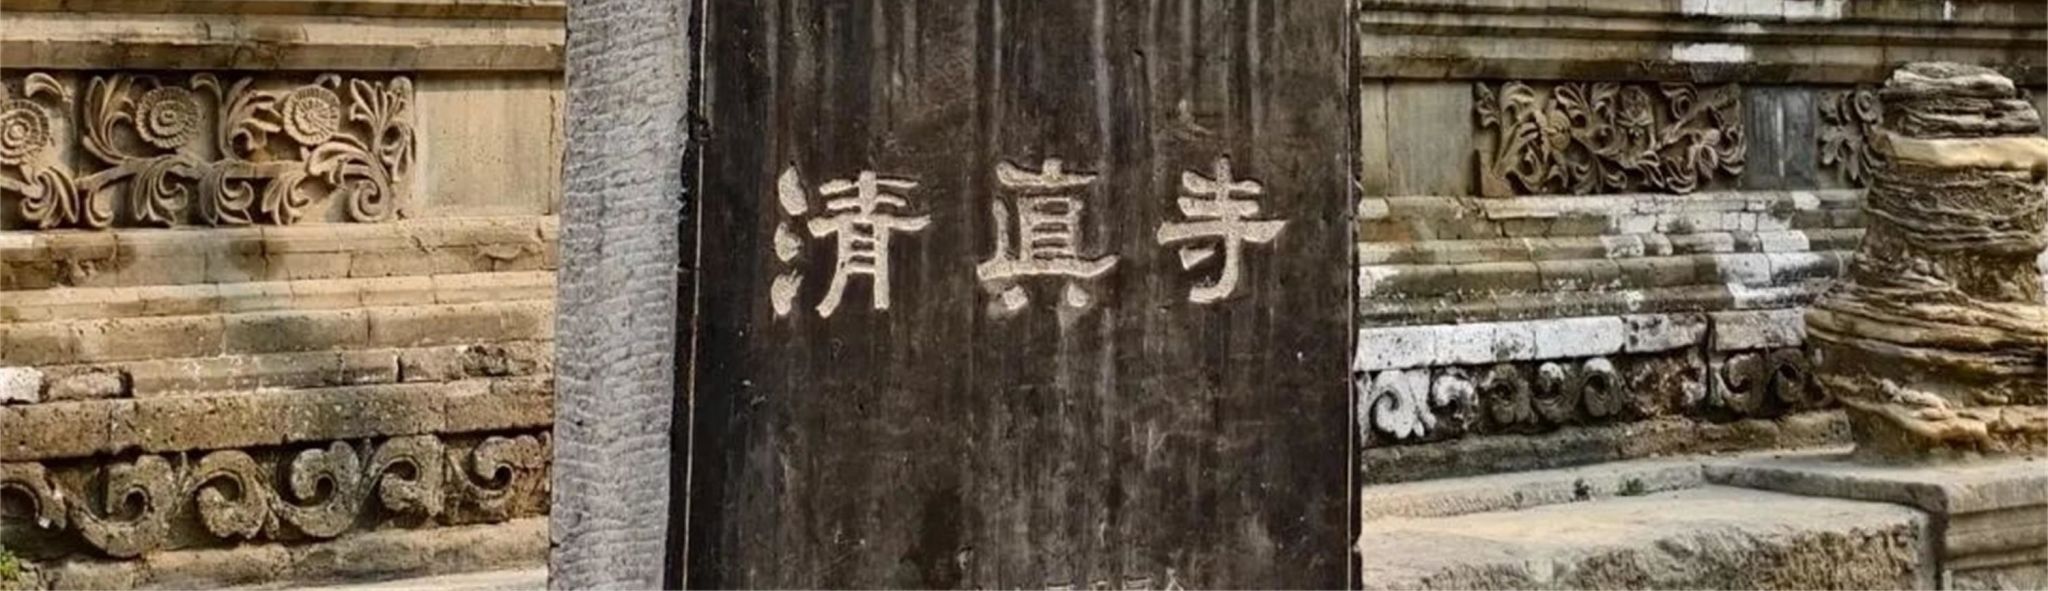 清真寺